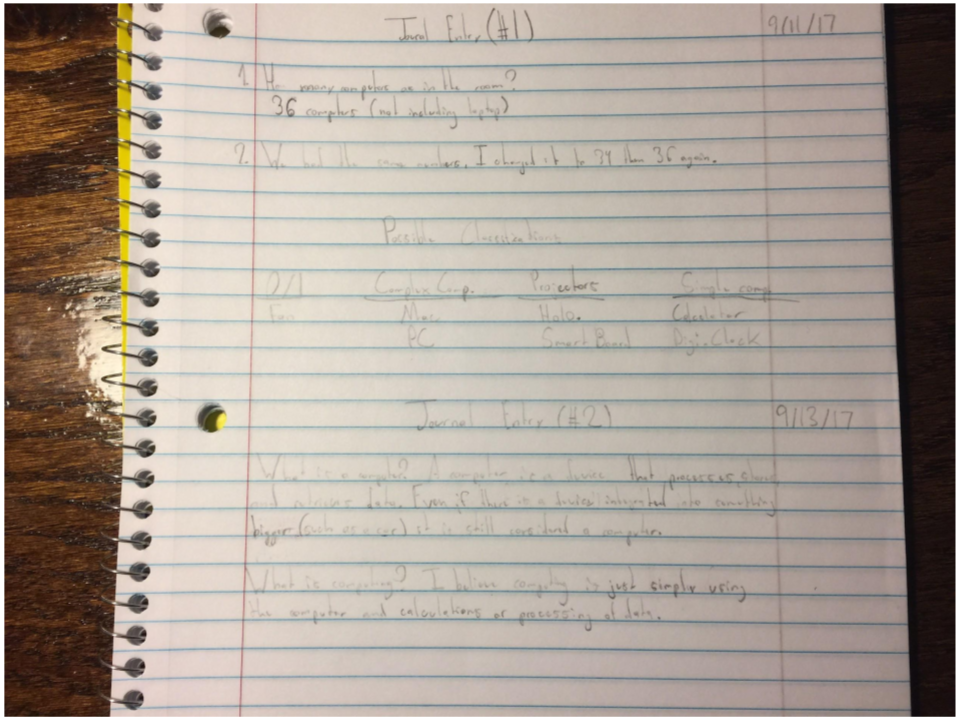 Journal Entry (#1) 9/11/17
1. How many computers are in the room?
36 computers (not including laptops)
2. We had the same numbers, I changed it to 34 then 36 again.
Possible
O/I Complex Comp. Projectors Simple comp.
Fan Mac Holo. Calculator
PC Smart Board Digi. Clock
Journal Entry (#2) 9/13/17
What is a computer? A computer is a device that processes, stores
and data. Even if there is a device integrated into something
bigger (such as a car) it is still considered a computer.
What is computing? I believe computing is just simply using
the computer and calculations or processing of data.